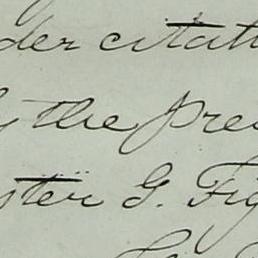 der citat
y the Pres
ster G. Fig